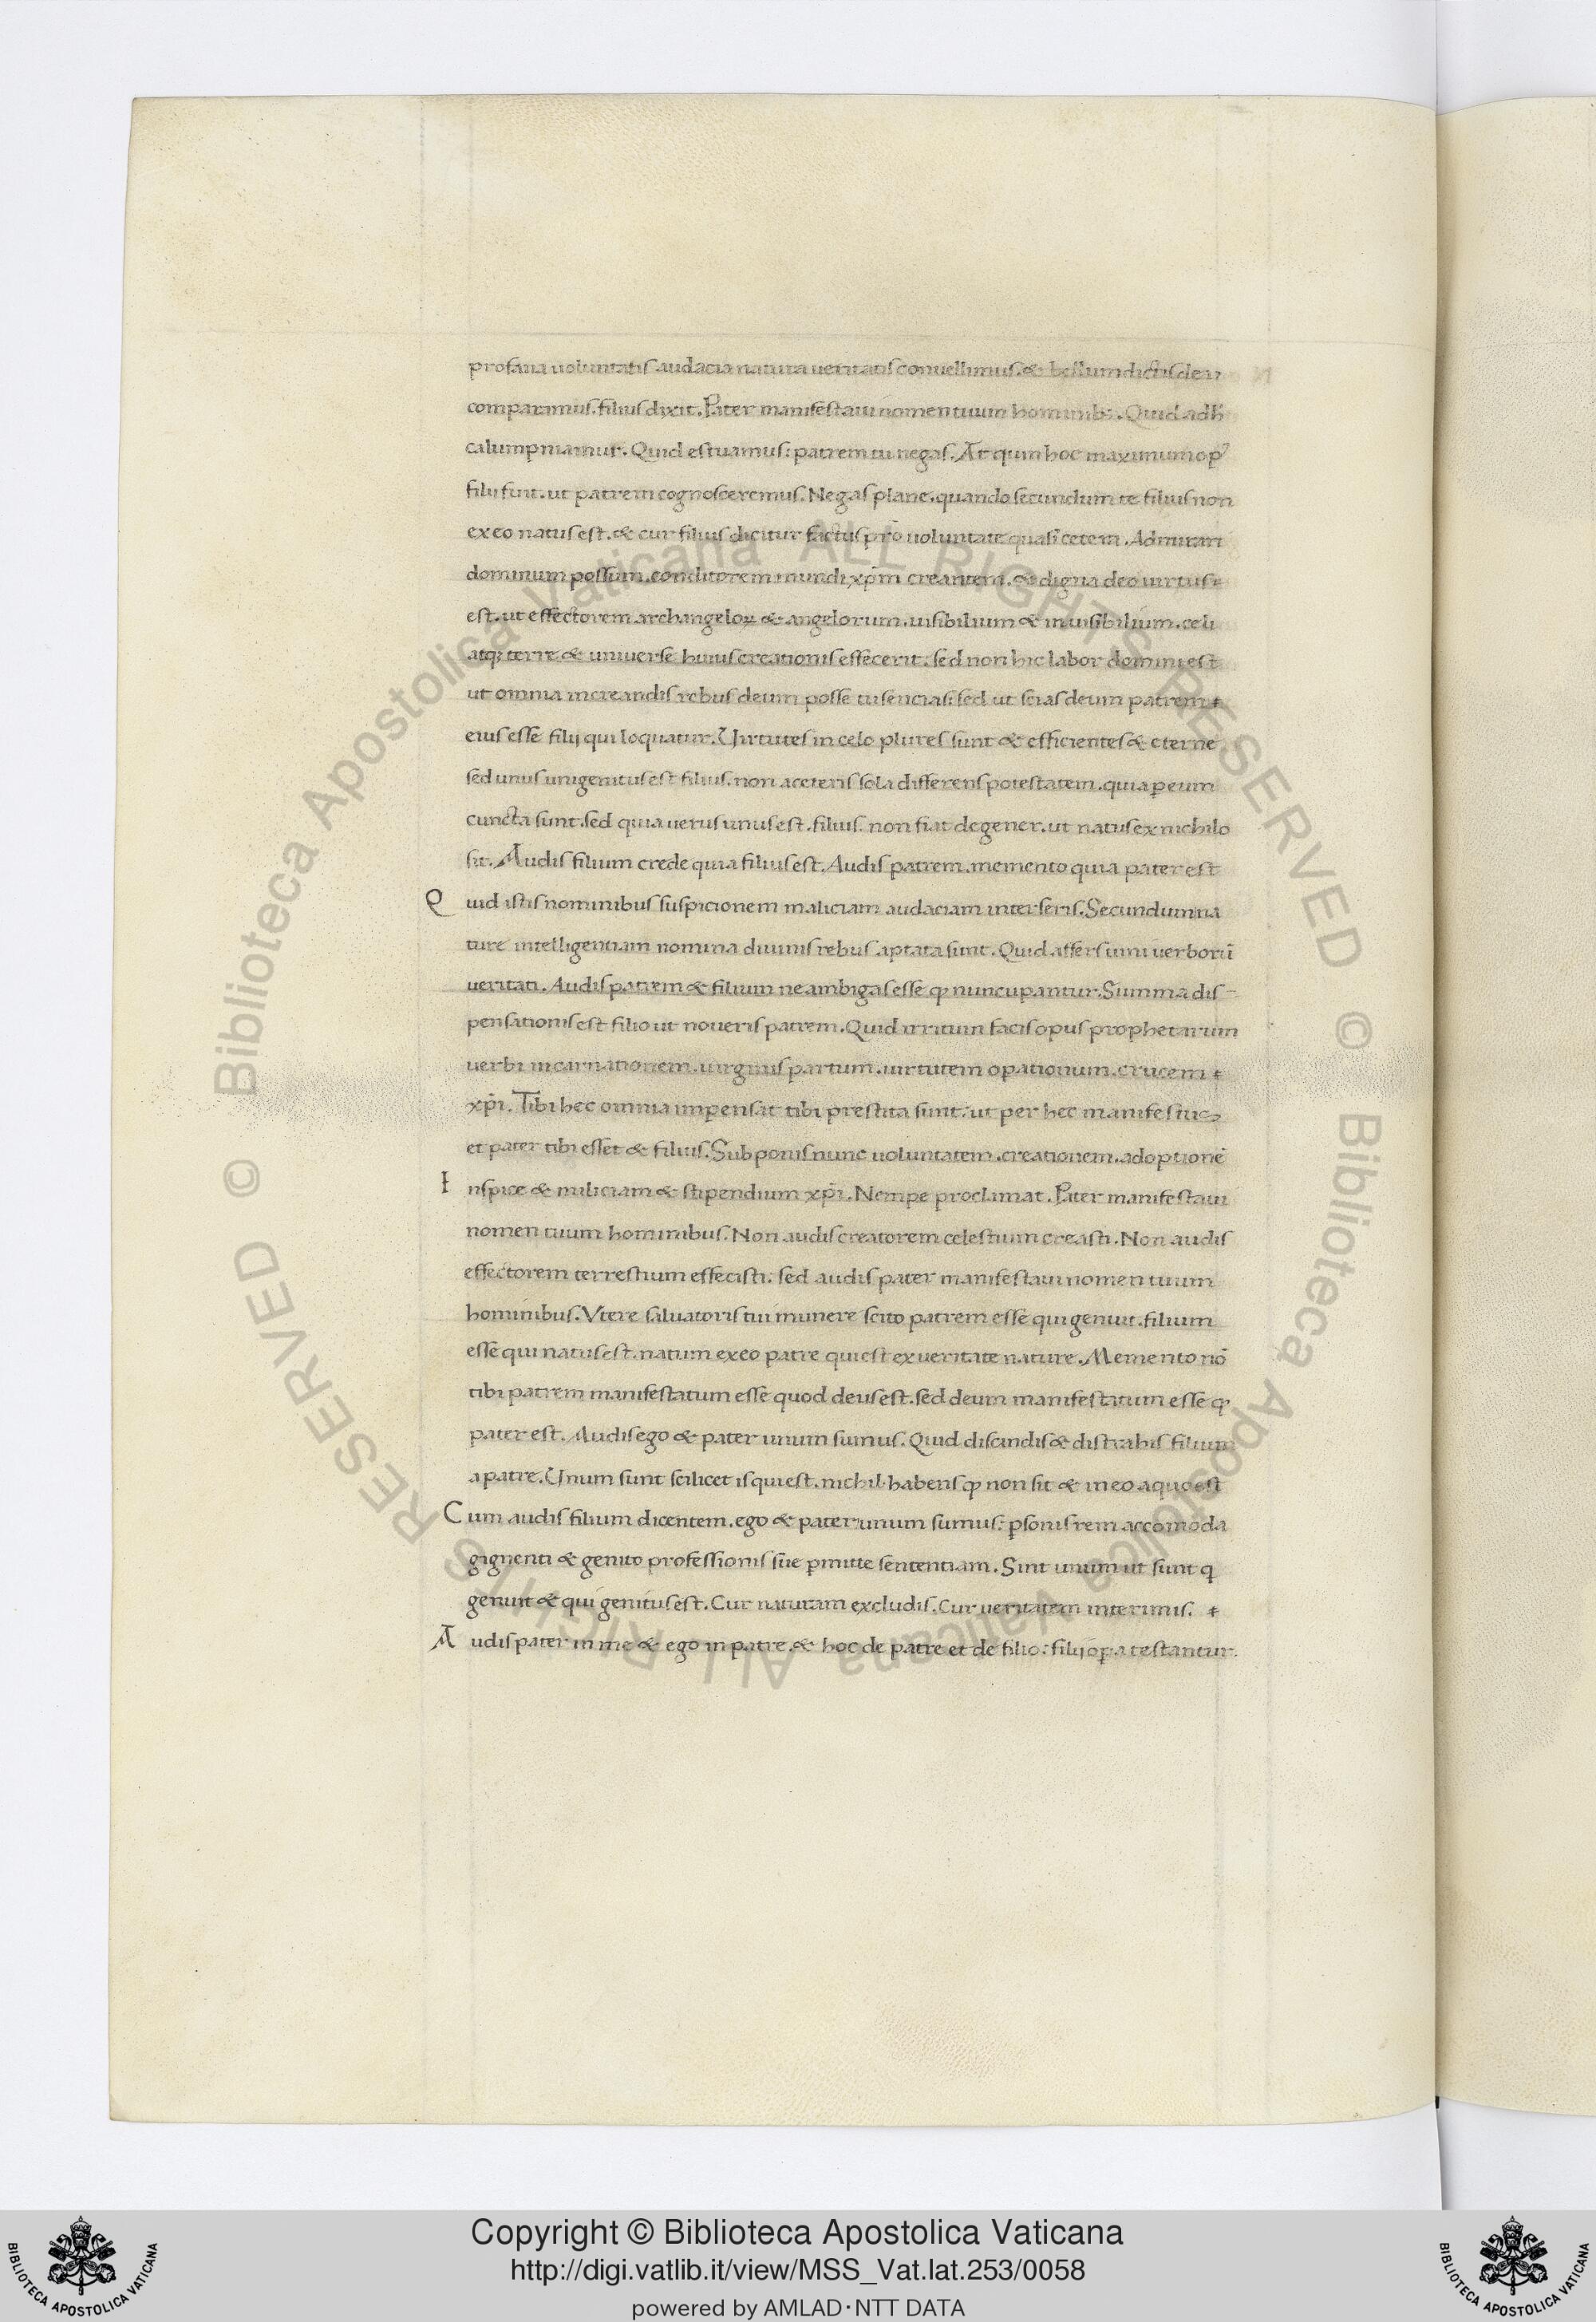 profana uoluntatis audacia natura ueritatis conuellimus. & bellum dictis dei
comparamus. filius dixit. Pater manifestaui nomen tuum hominibȝ. Quid adh̄
calumpniamur. Quid estuamus: patrem tu negas. At quin hoc maximum opꝰ
filii fuit. ut patrem cognosceremus. Negas plane. quando secundum te filius non
ex eo natus est. & cur filius dicitur factus pro uoluntate quasi cetera. Admirari
dominum possum. conditorem mundi xpm̄ creantem. & digna deo uirtus
est. ut effectorem archangeloꝝ & angelorum. uisibilium & inuisibilium. celi
atqȝ terre & uniuerse huius creationis effecerit. sed non hic labor domini est
ut omnia in creandis rebus deum posse tu sencias: sed ut scias deum patrem
eius esse filij qui loquatur. Uirtutes in celo plures sunt & efficientes & eterne
sed unus unigenitus est filius. non a ceteris sola differens potestatem. quia ꝑ eum
cuncta sunt. sed quia uerus unus est. filius. non fiat degener. ut natus ex nichilo
sit. Audis filium crede quia filius est. Audis patrem. memento quia pater est
Quid istis nominibus suspicionem maliciam audaciam interseris. Secundum na
ture intelligentiam nomina diuinis rebus aptata sunt. Quid affers uim uerborū
ueritati. Audis patrem & filium ne ambigas esse ꝙ nuncupantur. Summa dis-
pensationis est filio ut noueris patrem. Quid irritum facis opus prophetarum
uerbi incarnationem. uirginis partum. uirtutem oꝑationum. crucem
xpī. Tibi hec omnia impensa: tibi prestita sunt. ut per hec manifestus
et pater tibi esset & filius. Subponis nunc uoluntatem. creationem. adoptionē
Inspice & miliciam & stipendium xpī. Nempe proclimat. Pater manifestaui
nomen tuum hominibus. Non audis creatorem celestium creasti. Non audis
effectorem terrestium effecisti. sed audis pater manifestaui nomen tuum
hominibus. Vtere saluatoris tui munere scito patrem esse qui genuit. filium
esse qui natus est. natum ex eo patre qui est ex ueritate nature. Memento nō
tibi patrem manifestatum esse quod deus est. sed deum manifestatum esse ꝙ
pater est. Audis ego & pater unum sumus. Quid discindis & distrahis filium
a patre. Unum sunt scilicet is qui est. nichil habens ꝙ non sit & in eo a quo est
Cum audis filium dicentem. ego & pater unum sumus: ꝑsonis rem accomoda
gignenti & genito professionis sue ꝑmitte sententiam. Sint unum ut sunt q
genuit & qui genitus est. Cur naturam excludis. Cur ueritatem interimis.
Audis pater in me & ego in patre. & hoc de patre et de filio: filij oꝑa testantur.
© Biblioteca Apostolica Vaticana ALL RIGHTS RESERVED © Biblioteca Apostolica Vaticana ALL RIGHTS RESERVED
Copyright © Biblioteca Apostolica Vaticana
http://digi.vatlib.it/view/MSS_Vat.lat.253/0058
powered by AMLAD·NTT DATA
BIBLIOTECA APOSTOLICA VATICANA
BIBLIOTECA APOSTOLICA VATICANA